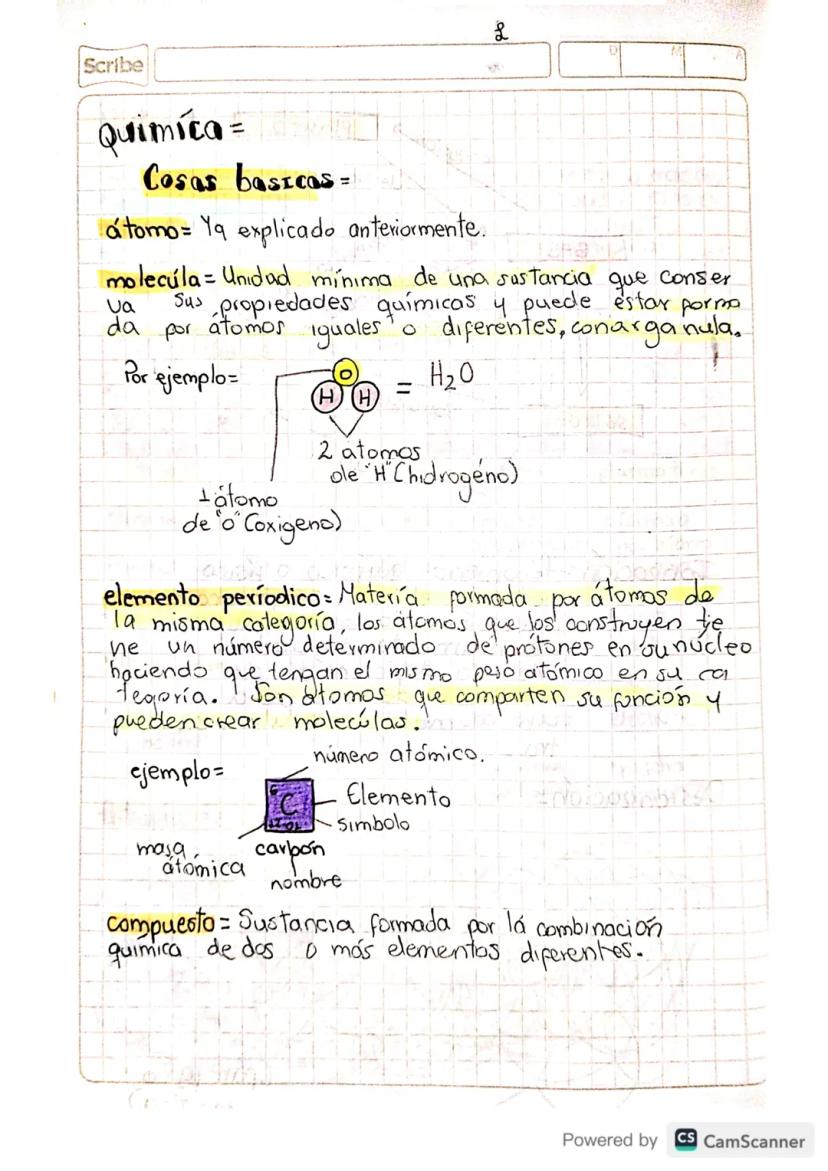 2
Scribe
D M A
Química=
Cosas basicas=
átomo= Ya explicado anteriormente.
molecúla= Unidad mínima de una sustancia que conser
va sus propiedades químicas y puede estar forma
da por átomos iguales o diferentes, con carga nula.
Por ejemplo=
O
H H = H₂O
2 átomos
de "H" (hidrogéno)
1 átomo
de "O" (oxigeno)
elemento períodico= Matería formada por átomos de
la misma categoría, los átomos que los construyen tie
ne un número determinado de prótones en su núcleo
haciendo que tengan el mismo peso atómico en su ca
tegoría. Son átomos que comparten su función y
pueden crear moleculas.
número atómico.
ejemplo=
6
C
Elemento
simbolo
12.01
masa
átomica
carbón
nombre
compuesto= Sustancia formada por la combinación
química de dos o más elementos diferentes.
Powered by CS CamScanner